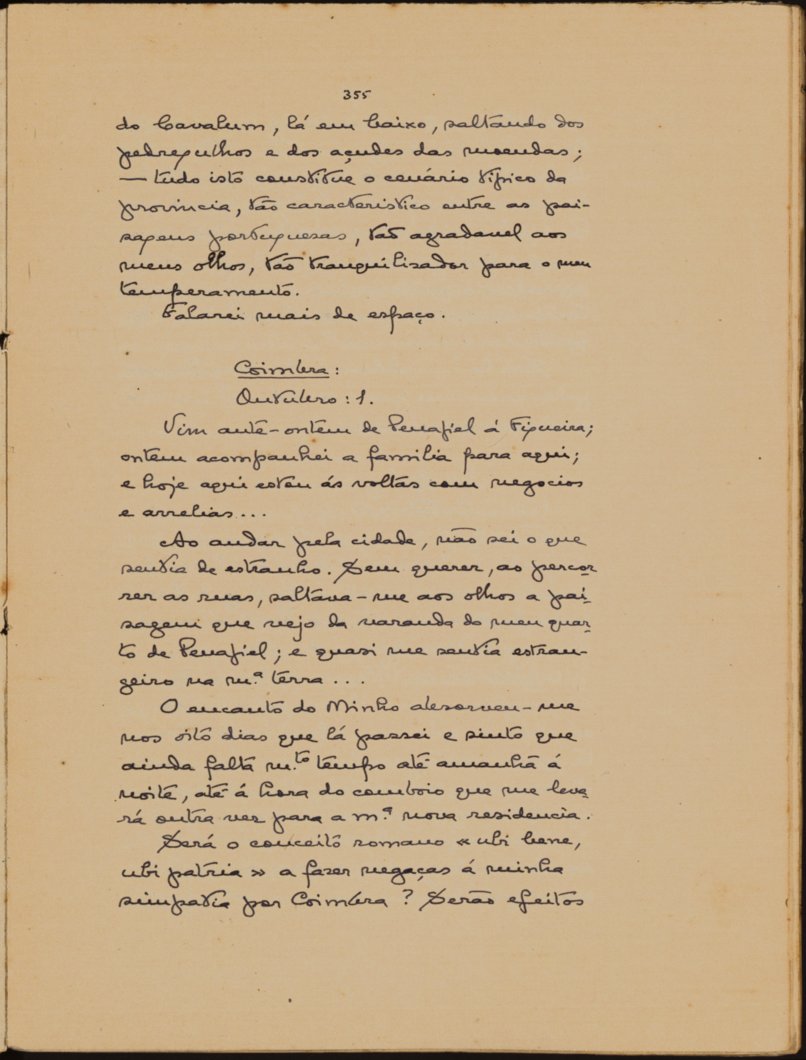 355
do Cavalum, lá em baixo, saltando dos
pedregulhos e dos açudes das moendas;
— tudo isto constitue o cenário típico da
província, tão característico entre as pai-
sagens portuguesas, tão agradavel aos
meus olhos, tão tranquilisador para o meu
temperamento.
Falarei mais de espaço.
Coimbra:
Outubro: 1.
Vim ante-ontem de Penafiel á Figueira;
ontem acompanhei a familia para aqui;
e hoje aqui estou ás voltas com negocios
e arrelias...
Ao andar pela cidade, não sei o que
sentia de estranho. Sem querer, ao percor
rer as ruas, saltava-me aos olhos a pai
sagem que vejo da varanda do meu quar
to de Penafiel; e quasi me sentia estran-
geiro na m.ª terra...
O encanto do Minho absorveu-me
nos oito dias que lá passei e sinto que
ainda falta m.to tempo até amanhã á
noite, até á hora do comboio que me leva
rá outra vez para a m.ª nova residencia.
Será o conceito romano «ubi bene,
ubi patria» a fazer negaças á minha
simpatia por Coimbra? Serão efeitos